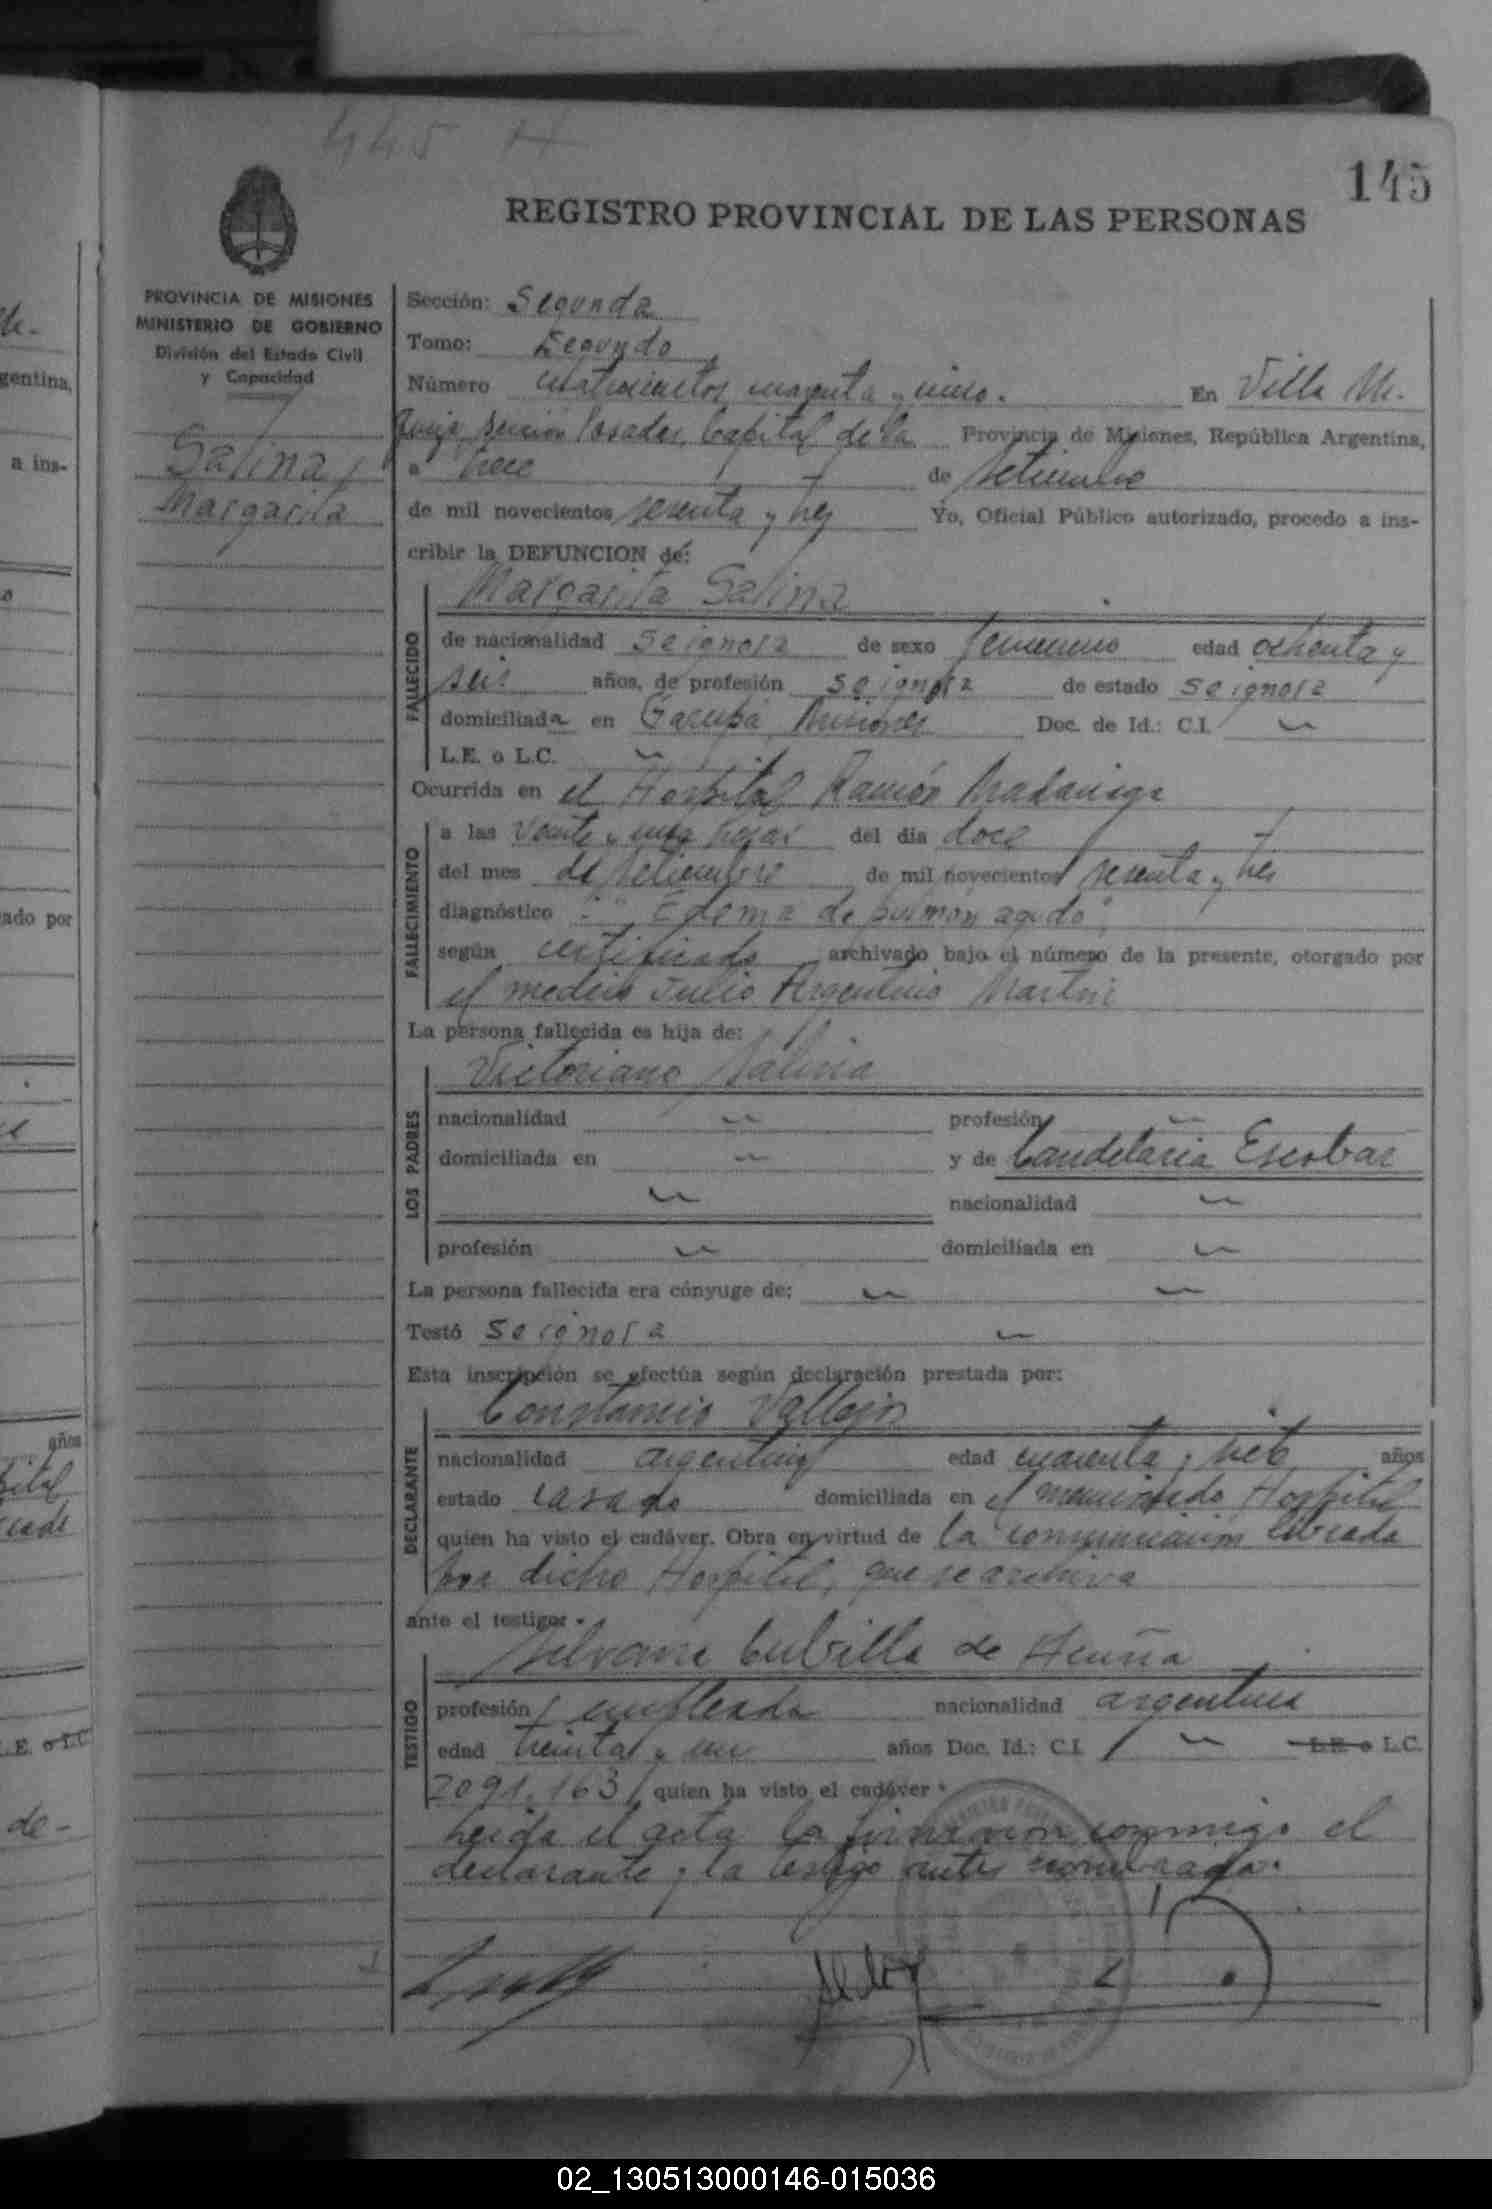 445 H
145
REGISTRO PROVINCIAL DE LAS PERSONAS
PROVINCIA DE MISIONES
MINISTERIO DE GOBIERNO
División del Estado Civil
y Capacidad
Salina,
Margarita
Sección: Segunda
Tomo: Segundo
Número cuatrocientos cuarenta y cinco. En Villa M.
sección Posadas, Capital de la Provincia de Misiones, República Argentina,
a trece de setiembre
de mil novecientos sesenta y tres Yo, Oficial Público autorizado, procedo a ins-
cribir la DEFUNCION de:
Margarita Salina
FALLECIDO
de nacionalidad se ignora de sexo femenino edad ochenta y
seis años, de profesión se ignora de estado se ignora
domiciliada en Garupá Misiones Doc. de Id.: C.I. "
L.E. o L.C. "
Ocurrida en el Hospital Ramón Madariaga
FALLECIMIENTO
a las veinte y una horas del día doce
del mes de setiembre de mil novecientos sesenta y tres
diagnóstico : "Edema de pulmon agudo",
según certificado archivado bajo el número de la presente, otorgado por
el medico Julio Argentino
La persona fallecida es hija de:
Victoriano Salina
LOS PADRES
nacionalidad " profesión "
domiciliada en " y de Candelaria Escobar
" nacionalidad "
profesión " domiciliada en "
La persona fallecida era cónyuge de: " "
Testó se ignora "
Esta inscripción se efectúa según declaración prestada por:
Constancio Vallejos
DECLARANTE
nacionalidad argentino edad cuarenta y siete años
estado casado domiciliada en el mencionado Hospital
quien ha visto el cadáver. Obra en virtud de la comunicación librada
por dicho Hospital, que se archiva
ante el testigo:
Silvana Cubilla de Acuña
TESTIGO
profesión empleada nacionalidad argentina
edad treinta y un años Doc. Id.: C.I. " L.E. o L.C.
2091.163 quien ha visto el cadáver.
Leida el acta la firmaron conmigo el
declarante y la testigo antes nombrada.
gentina,
a ins-
ado por
años
L.E. o L.C.
de-
02_130513000146-015036